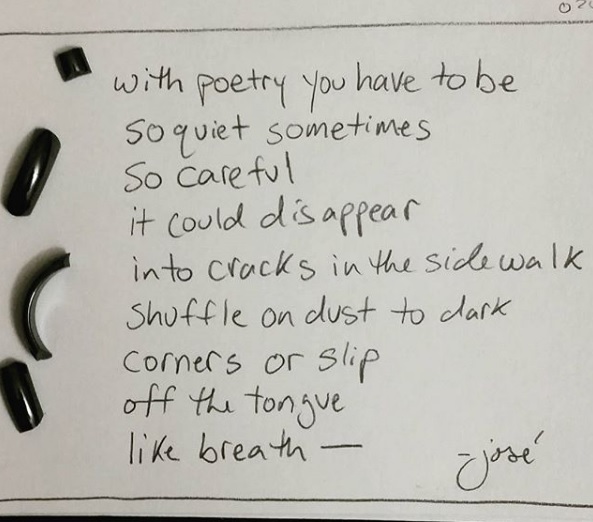 with poetry you have to be
so quiet sometimes
so careful
it could disappear
into cracks in the sidewalk
shuffle on dust to dark
corners or slip
off the tongue
like breath —
- josé